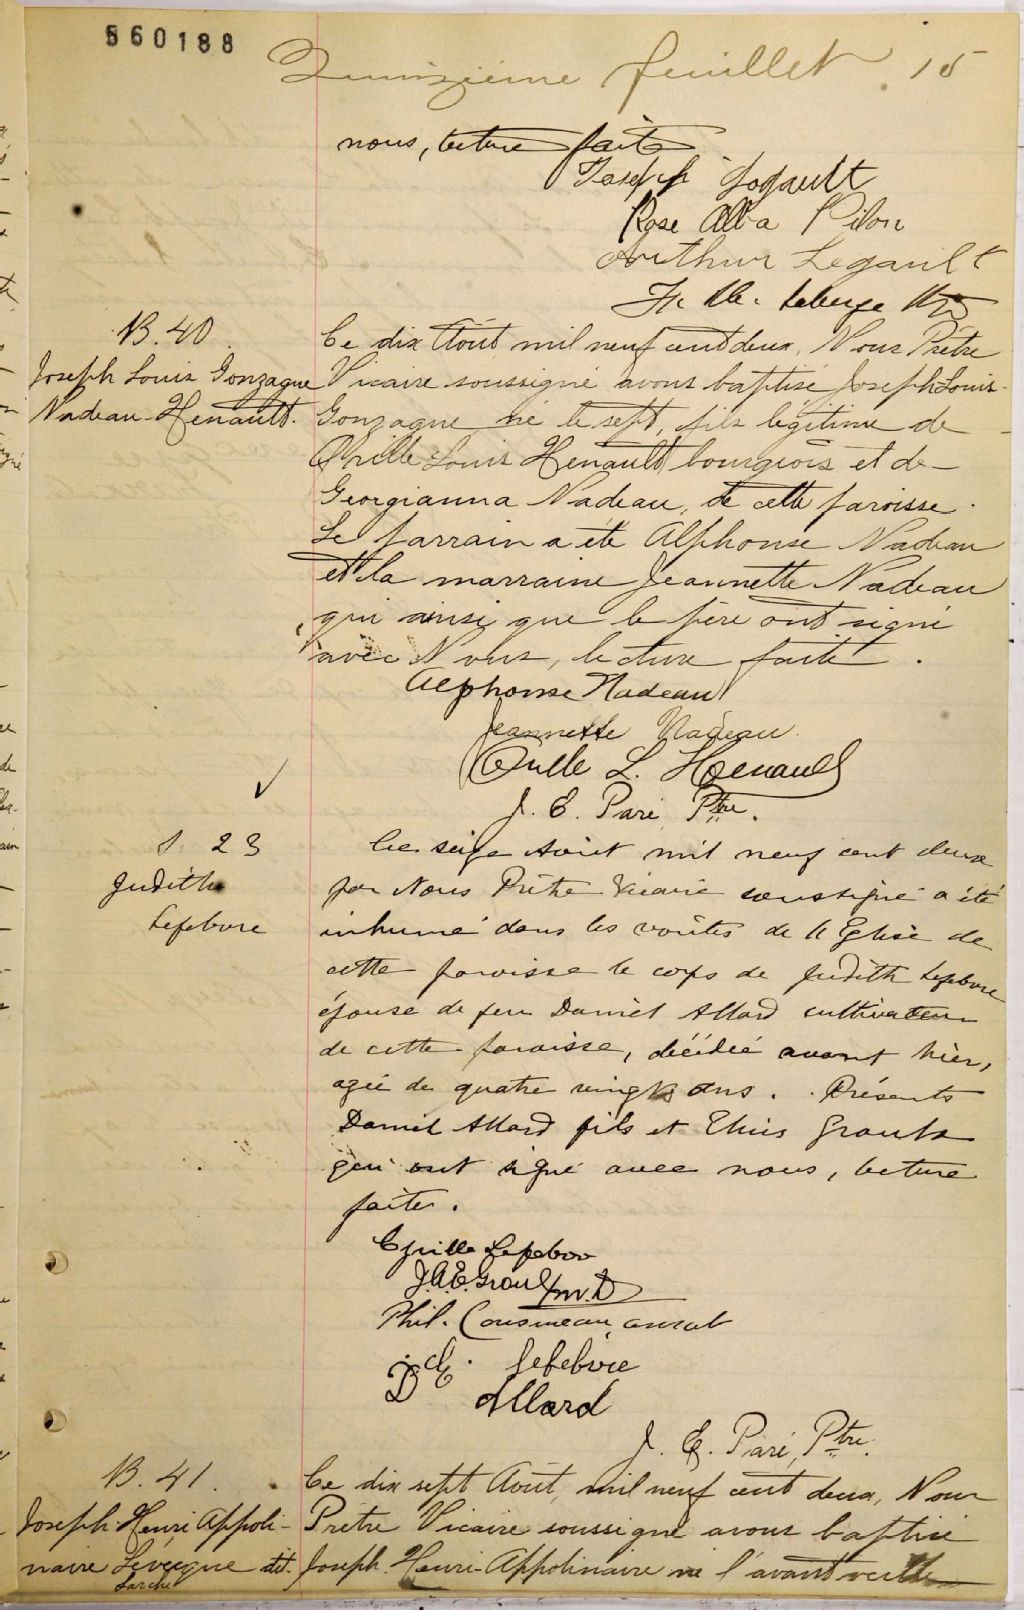 560188
Quinzième feuillet 15
nous, lecture faite
Joseph Legault
Rose Alba Pilon
Arthur Legault
Leberge Ptre
B. 40
Joseph Louis Gonzague
Nadeau-Henault.
Ce dix Août mil neuf cent deux, Nous Prêtre
Vicaire soussigné avons baptisé Joseph Louis-
Gonzague né le sept, fils légitime de
Louis Henault bourgeois et de
Georgianna Nadeau, de cette paroisse.
Le parrain a été Alphonse Nadeau
et la marraine Jeannette Nadeau
qui ainsi que le père ont signé
avec Nous, lecture faite.
Alphonse Nadeau
Jeannette Nadeau
L. Henault
J. E. Paré Ptre.
S. 23
Judith
Lefebvre
Ce seize Août mil neuf cent deux
par Nous Prêtre Vicaire soussigné a été
inhumé dans les voûtes de l'Eglise de
cette paroisse le corps de Judith Lefebvre
épouse de feu Daniel Allard cultivateur
de cette paroisse, décédée avant hier,
agée de quatre vingts ans. Présents
Daniel Allard fils et Groulx
qui ont signé avec nous, lecture
faite.
Cyrille Lefebvre
J.A.E. Groulx m.D
Phil. Cousineau, avocat
D. E. Lefebvre
Allard
J. E. Paré, Ptre.
B. 41.
Joseph-Henri Appoli-
naire Lévêque dit
Larche
Ce dix sept Août, mil neuf cent deux, Nous
Prêtre Vicaire soussigné avons baptisé
Joseph-Henri-Appolinaire né l'avant veille